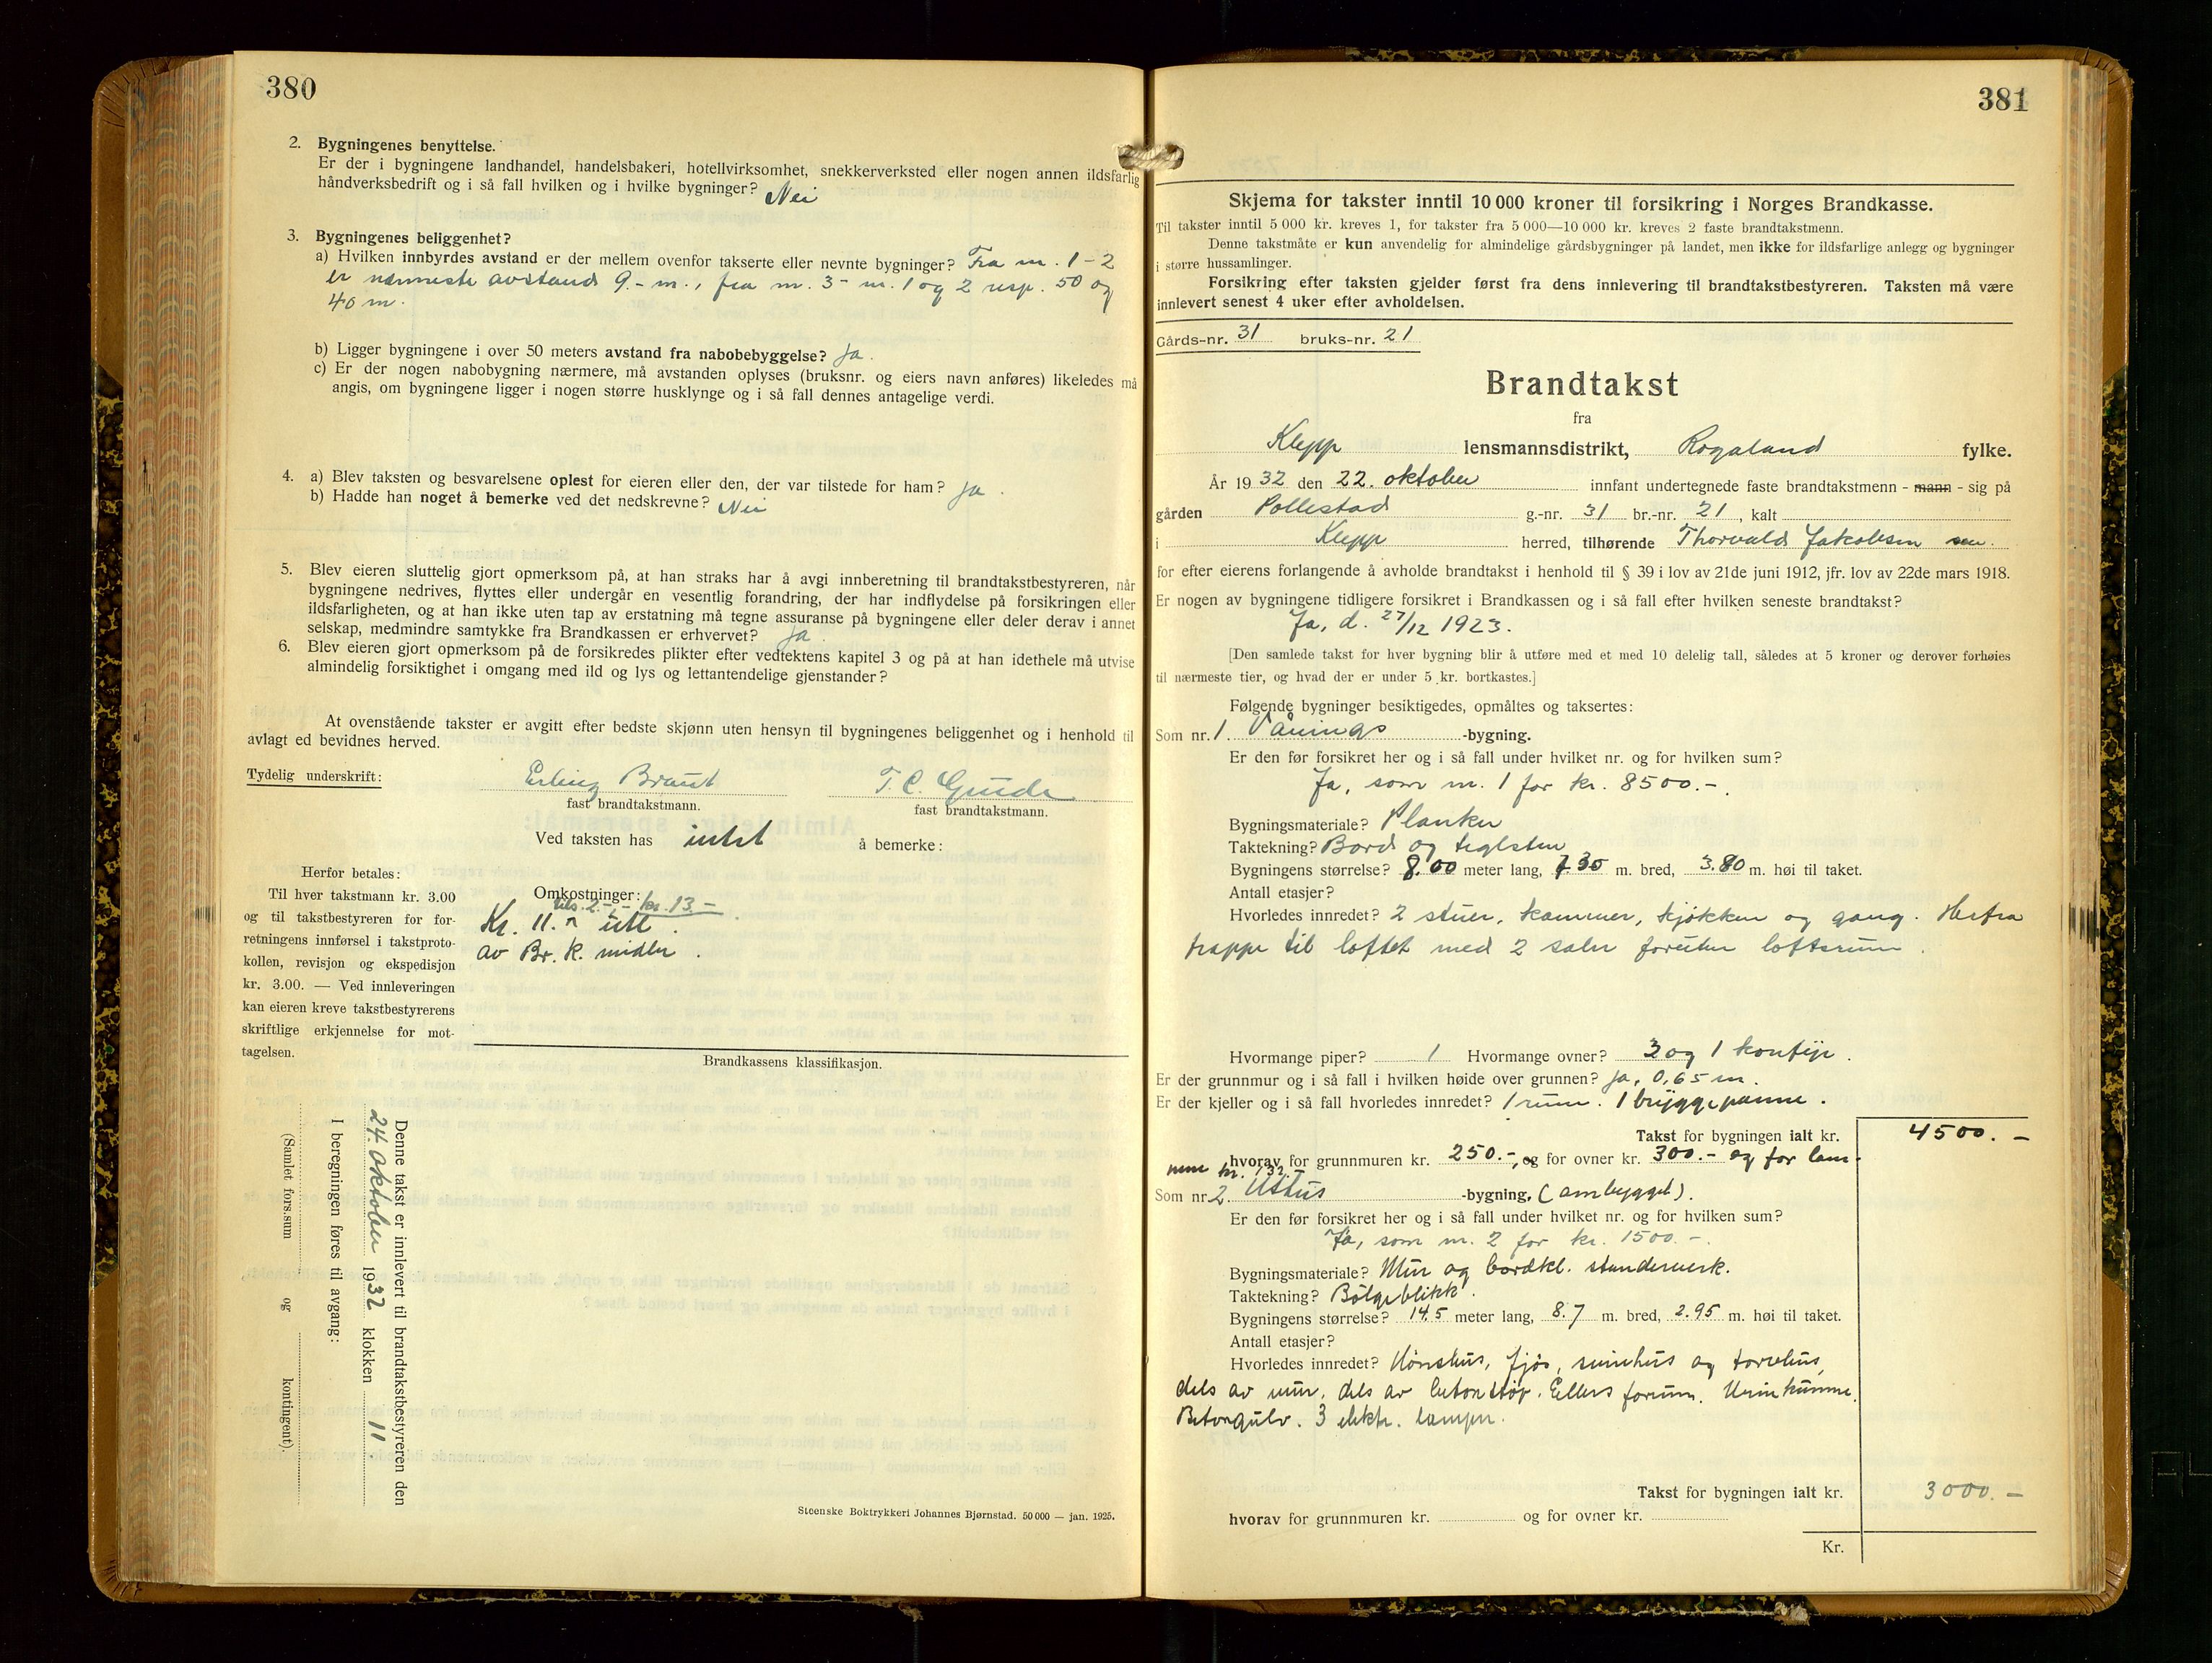 380
2. Bygningenes benyttelse.
Er der i bygningene landhandel, handelsbakeri, hotellvirksomhet, snekkerverksted eller nogen annen ildsfarlig
håndverksbedrift og i så fall hvilken og i hvilke bygninger? Nei
3. Bygningenes beliggenhet?
a) Hvilken innbyrdes avstand er der mellem ovenfor takserte eller nevnte bygninger? Fra nr. 1 - 2
er nærmeste avstand 9.- m., fra nr. 3 - nr. 1 og 2 resp. 50 og
40 m.
b) Ligger bygningene i over 50 meters avstand fra nabobebyggelse? Ja.
c) Er der nogen nabobygning nærmere, må avstanden oplyses (bruksnr. og eiers navn anføres) likeledes må
angis, om bygningene ligger i nogen større husklynge og i så fall dennes antagelige verdi.
4. a) Blev taksten og besvarelsene oplest for eieren eller den, der var tilstede for ham? Ja.
b) Hadde han noget å bemerke ved det nedskrevne? Nei
5. Blev eieren sluttelig gjort opmerksom på, at han straks har å avgi innberetning til brandtakstbestyreren, når
bygningene nedrives, flyttes eller undergår en vesentlig forandring, der har indflydelse på forsikringen eller
ildsfarligheten, og at han ikke uten tap av erstatning må tegne assuranse på bygningene eller deler derav i annet
selskap, medmindre samtykke fra Brandkassen er erhvervet? Ja.
6. Blev eieren gjort opmerksom på de forsikredes plikter efter vedtektens kapitel 3 og på at han idethele må utvise
almindelig forsiktighet i omgang med ild og lys og lettantendelige gjenstander?
At ovenstående takster er avgitt efter bedste skjønn uten hensyn til bygningenes beliggenhet og i henhold til
avlagt ed bevidnes herved.
Tydelig underskrift: Erling Braut T. C. Gruda
fast brandtakstmann. fast brandtakstmann.
Ved taksten has intet å bemerke:
Herfor betales:
Til hver takstmann kr. 3.00
og til takstbestyreren for for-
retningens innførsel i takstproto-
kollen, revisjon og ekspedisjon
kr. 3.00. — Ved innleveringen
kan eieren kreve takstbestyrerens
skriftlige erkjennelse for mot-
tagelsen.
Omkostninger:
2.- kr. 13.-
Kr. 11.- utl.
av Br. k. midler.
Brandkassens klassifikasjon.
Denne takst er innlevert til brandtakstbestyreren den
24. oktober 1932 klokken 11
I beregningen føres til avgang:
(Samlet fors.sum og kontingent).
Steenske Boktrykkeri Johannes Bjørnstad. 50 000 — jan. 1925.
381
Skjema for takster inntil 10 000 kroner til forsikring i Norges Brandkasse.
Til takster inntil 5 000 kr. kreves 1, for takster fra 5 000—10 000 kr. kreves 2 faste brandtakstmenn.
Denne takstmåte er kun anvendelig for almindelige gårdsbygninger på landet, men ikke for ildsfarlige anlegg og bygninger
i større hussamlinger.
Forsikring efter taksten gjelder først fra dens innlevering til brandtakstbestyreren. Taksten må være
innlevert senest 4 uker efter avholdelsen.
Gårds-nr. 31 bruks-nr. 21
Brandtakst
fra
Klepp lensmannsdistrikt, Rogaland fylke.
År 1932 den 22. oktober innfant undertegnede faste brandtakstmenn - mann - sig på
gården Pollestad g.-nr. 31 br.-nr. 21, kalt
i Klepp herred, tilhørende Thorvald Jakobsen sen.
for efter eierens forlangende å avholde brandtakst i henhold til § 39 i lov av 21de juni 1912, jfr. lov av 22de mars 1918.
Er nogen av bygningene tidligere forsikret i Brandkassen og i så fall efter hvilken seneste brandtakst?
Ja, d. 27/12 1923.
[Den samlede takst for hver bygning blir å utføre med et med 10 delelig tall, således at 5 kroner og derover forhøies
til nærmeste tier, og hvad der er under 5 kr. bortkastes.]
Følgende bygninger besiktigedes, opmåltes og taksertes:
Som nr. 1. Vånings -bygning.
Er den før forsikret her og i så fall under hvilket nr. og for hvilken sum?
Ja, som nr. 1 for kr. 8500.-.
Bygningsmateriale? Planker
Taktekning? Bord og teglsten
Bygningens størrelse? 8.00 meter lang, 7.30 m. bred, 3.80 m. høi til taket.
Antall etasjer?
Hvorledes innredet? 2 stuer, kammer, kjøkken og gang. Herfra
trappe til loftet med 2 saler foruten loftsrum.
Hvormange piper? 1 Hvormange ovner? 3 og 1 komfyr.
Er der grunnmur og i så fall i hvilken høide over grunnen? Ja, 0,65 m.
Er der kjeller og i så fall hvorledes innredet? 1 rum. 1 bryggepanne.
Takst for bygningen ialt kr. 4500.-
hvorav for grunnmuren kr. 250.-, og for ovner kr. 300.- og for lam-
kr. 132.-
Som nr. 2. Uthus -bygning. (ombygget).
Er den før forsikret her og i så fall under hvilket nr. og for hvilken sum?
Ja, som nr. 2 for kr. 1500.-.
Bygningsmateriale? Mur og bordkl. stenderverk.
Taktekning? Bølgeblikk.
Bygningens størrelse? 14.5 meter lang, 8.7 m. bred, 2.95 m. høi til taket.
Antall etasjer?
Hvorledes innredet? Hønshus, fjøs, svinehus og torvhus,
dels av mur, dels av betonstøp. Ellers forrum. Urinkumme.
Betongulv. 3 elektr. lamper.
Takst for bygningen ialt kr. 3000.-
hvorav for grunnmuren kr. og for ovner kr.
Kr.